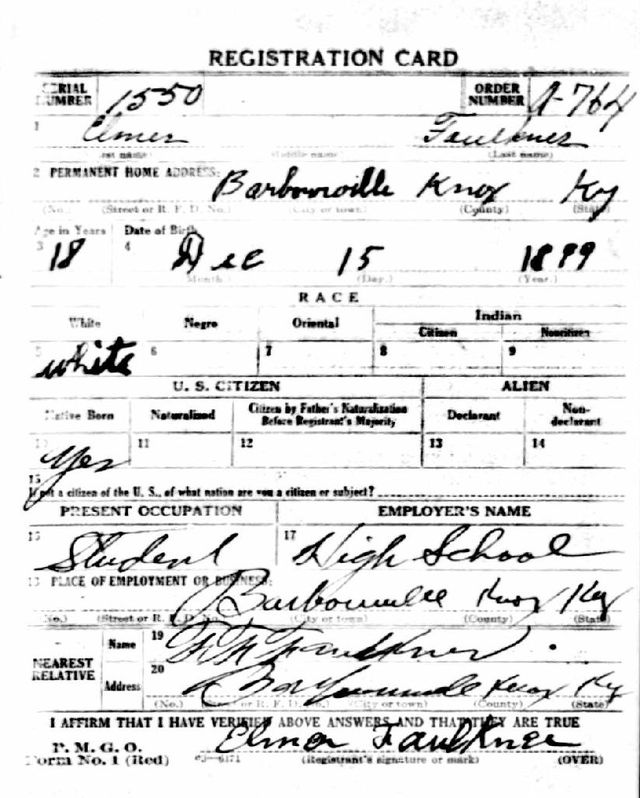 REGISTRATION CARD
SERIAL NUMBER 1550 ORDER NUMBER A-764
1 Elmer Faulkner
(First name) (Middle name) (Last name)
2 PERMANENT HOME ADDRESS: Barbourville Knox Ky
(No.) (Street or R. F. D. No.) (City or town) (County) (State)
Age in Years Date of Birth
3 18 4 Dec 15 1899
(Month.) (Day.) (Year.)
RACE
White Negro Oriental Indian
Citizen Noncitizen
5 white 6 7 8 9
U. S. CITIZEN ALIEN
Native Born Naturalized Citizen by Father's Naturalization Before Registrant's Majority Declarant Non-declarant
10 Yes 11 12 13 14
15
If not a citizen of the U. S., of what nation are you a citizen or subject?
PRESENT OCCUPATION EMPLOYER'S NAME
16 Student 17 High School
18 PLACE OF EMPLOYMENT OR BUSINESS:
Barbourville Knox Ky
(No.) (Street or R. F. D. No.) (City or town) (County) (State)
NEAREST RELATIVE Name 19 Faulkner
Address 20 Barbourville Knox Ky
(No.) (Street or R. F. D. No.) (City or town) (County) (State)
I AFFIRM THAT I HAVE VERIFIED ABOVE ANSWERS AND THAT THEY ARE TRUE
P. M. G. O. Elmer Faulkner
Form No. 1 (Red) 03—6171 (Registrant's signature or mark) (OVER)